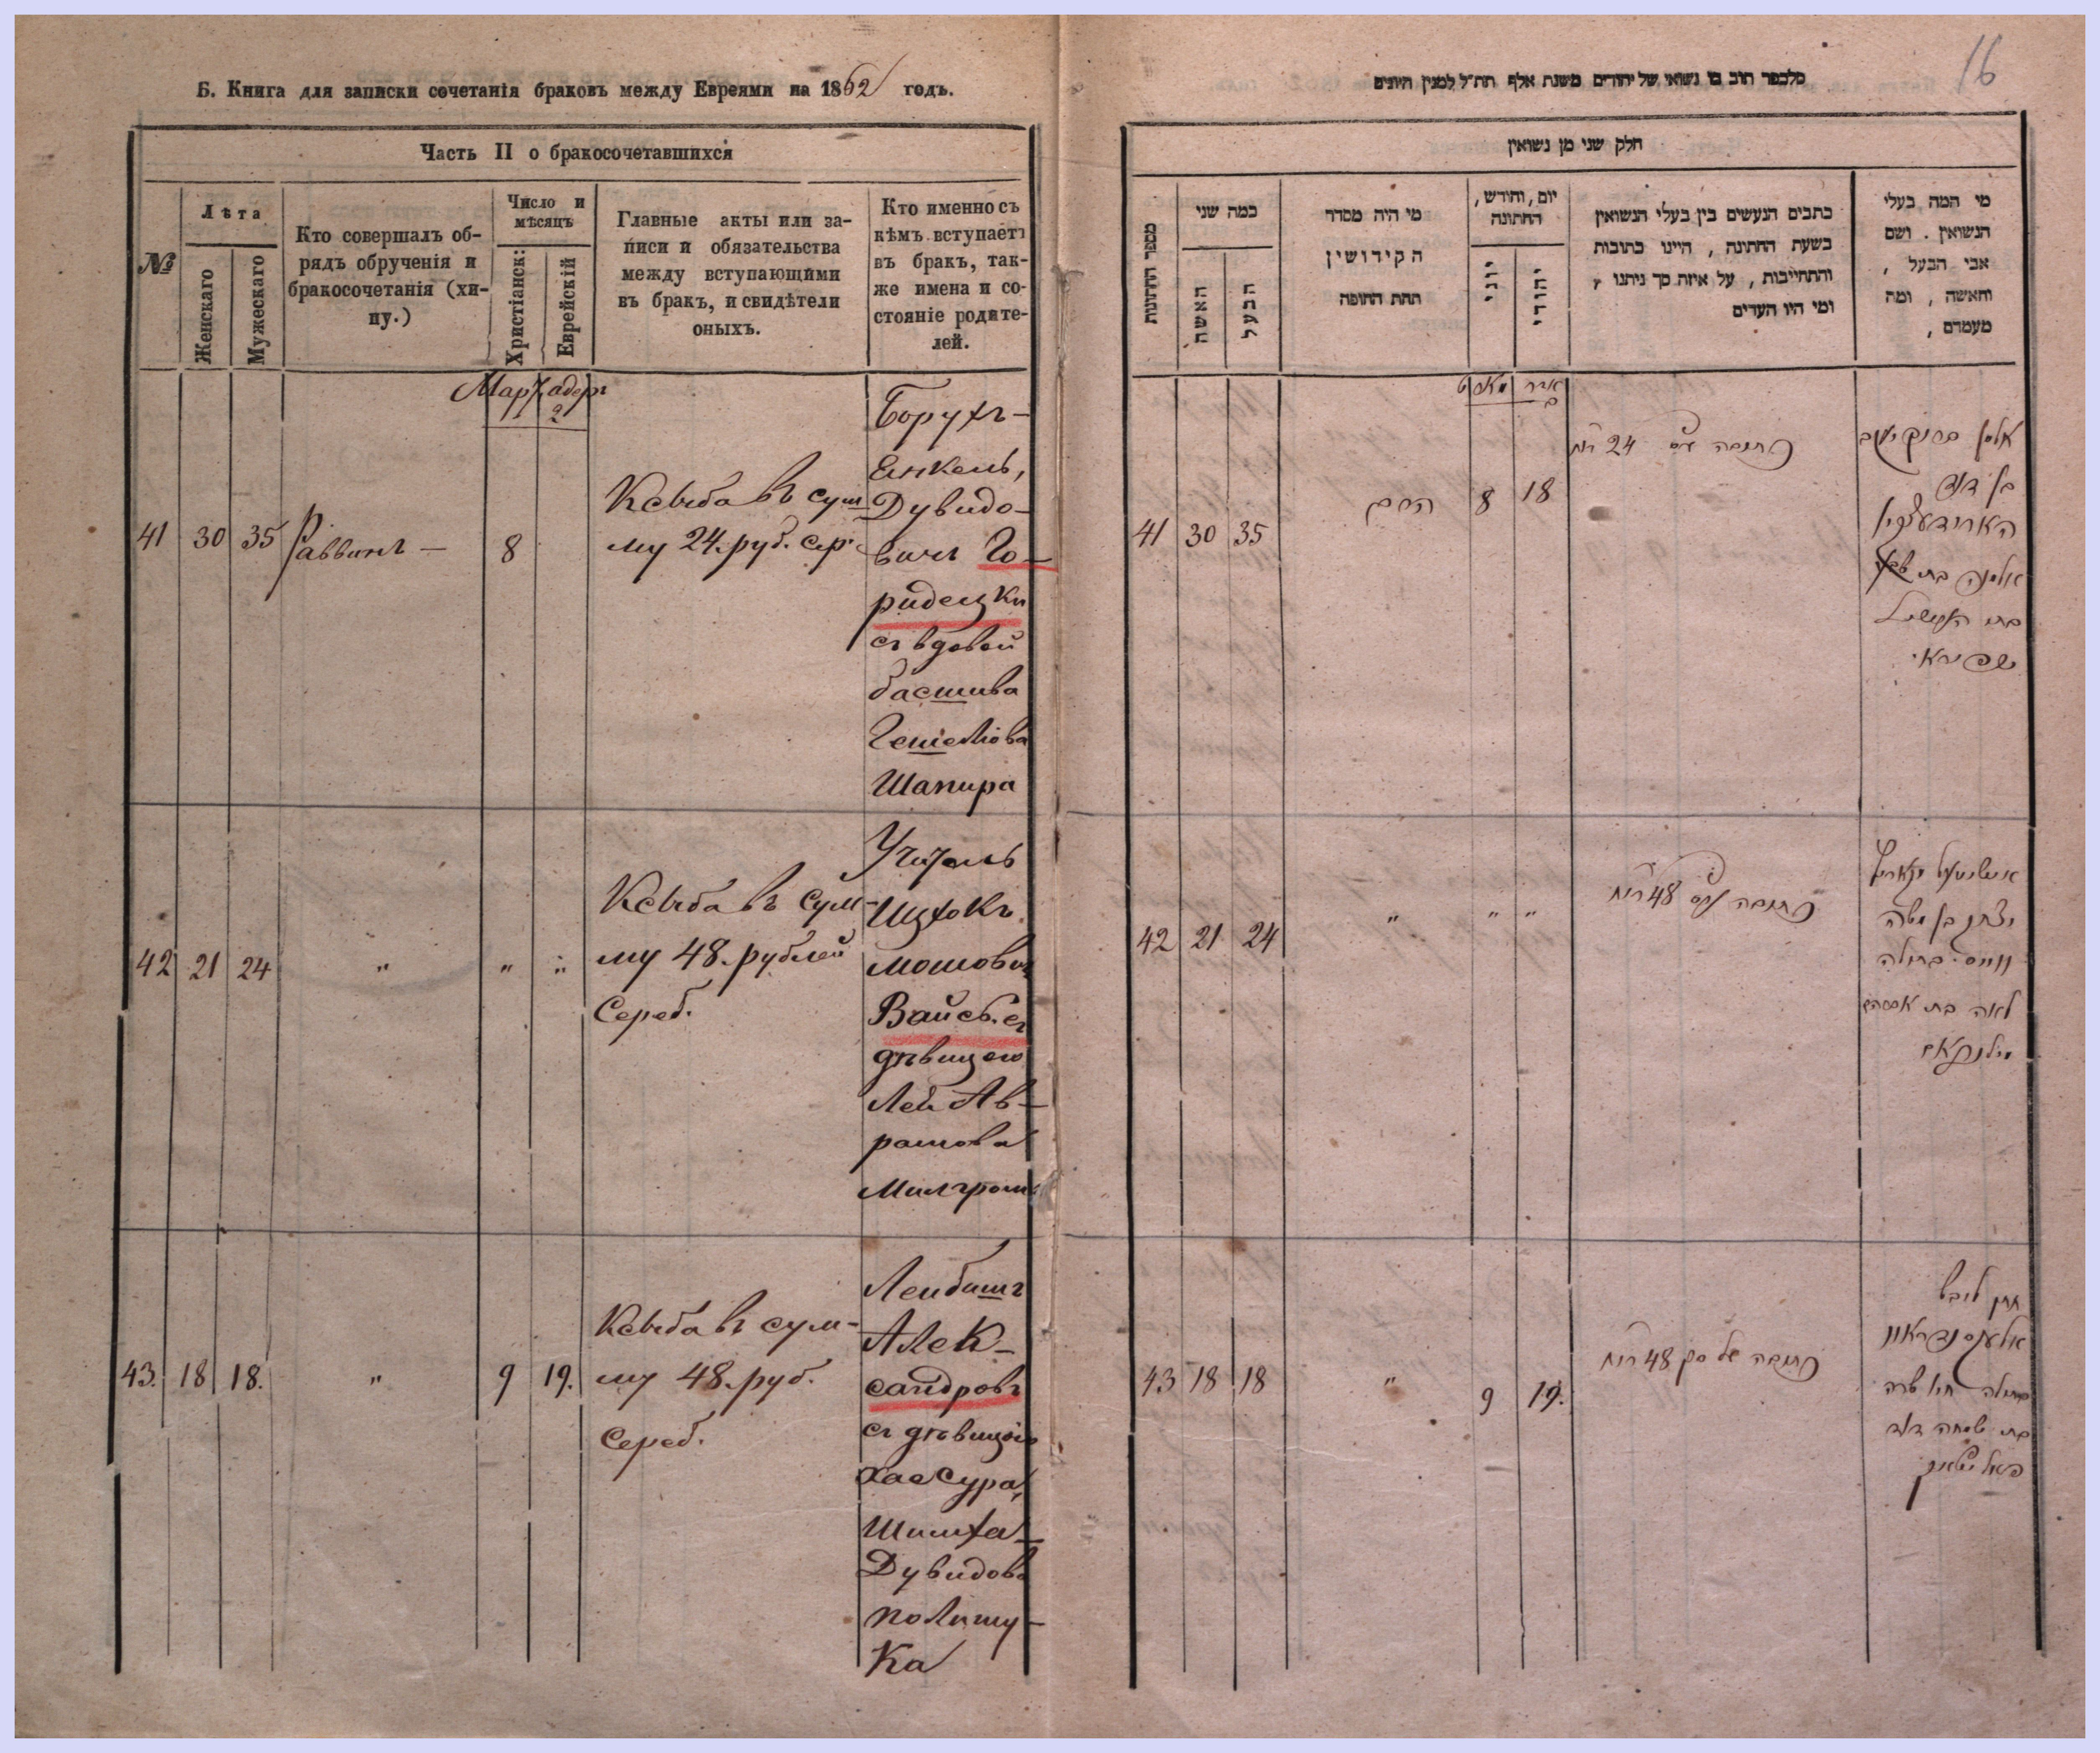 Б. Книга для записки сочетанія браковъ между Евреями на 1862 годъ.
Часть II о бракосочетавшихся
№
Лѣта
Женскаго
Мужескаго
Кто совершалъ об-
рядъ обрученія и
бракосочетанія (хи-
пу.)
Число и
мѣсяцъ
Христіанск:
Еврейскій
Главные акты или за-
писи и обязательства
между вступающими
въ бракъ, и свидѣтели
оныхъ.
Кто именно съ
кѣмъ вступаетъ
въ бракъ, так-
же имена и со-
стояніе родите-
лей.
Март адеръ
2
41 30 35 Раввинъ — 8
Ксыба въ сум
му 24. руб. сер.
Борухъ-
Енкель,
Дувидо-
вичъ Го-
ридецки
съ вдовой
басшива
Гешелiова
Шапира
42 21 24 " " "
Ксыба въ сум-
му 48. рублей
Сереб.
Учитель
Ицхокъ
Мошовичъ
Вайсъ. съ
дѣвицею
Лея Ав-
рамова
Милгромъ
43. 18 18. " 9 19.
Ксыба въ сум-
му 48. руб.
Сереб.
Леибишъ
Алек-
сандровъ
съ дѣвицею
Хае Сура,
Шимха
Дувидова
Полишу-
ка
16
חלק שני מן נשואין
מספר החתונות
כמה שני
האשה
הבעל
מי היה מסדר
הקידושין
תחת החופה
יום, וחודש,
החתונה
יוני
יהודי
כתבים הנעשים בין בעלי הנשואין
בשעת החתונה, היינו כתובות
והתחייבות, על איזה סך ניתנו,
ומי היו העדים
מי המה בעלי
הנשואין. ושם
אבי הבעל,
והאשה, ומה
מעמדם,
מארט אדר
ב
41 30 35 הרב 8 18
כתובה 24
אלמן ברוך יענקב
בן דוד
אלמנה בת שבע
בת העשיל
שפירא
42 21 24 " " "
כתובה 48
יצחק בן משה
ווייס בתולה
לאה בת אברהם
מילגראם
43 18 18 " 9 19.
כתובה של סך 48
חתן לייבש
בתולה חיה שרה
בת שמחה דוד